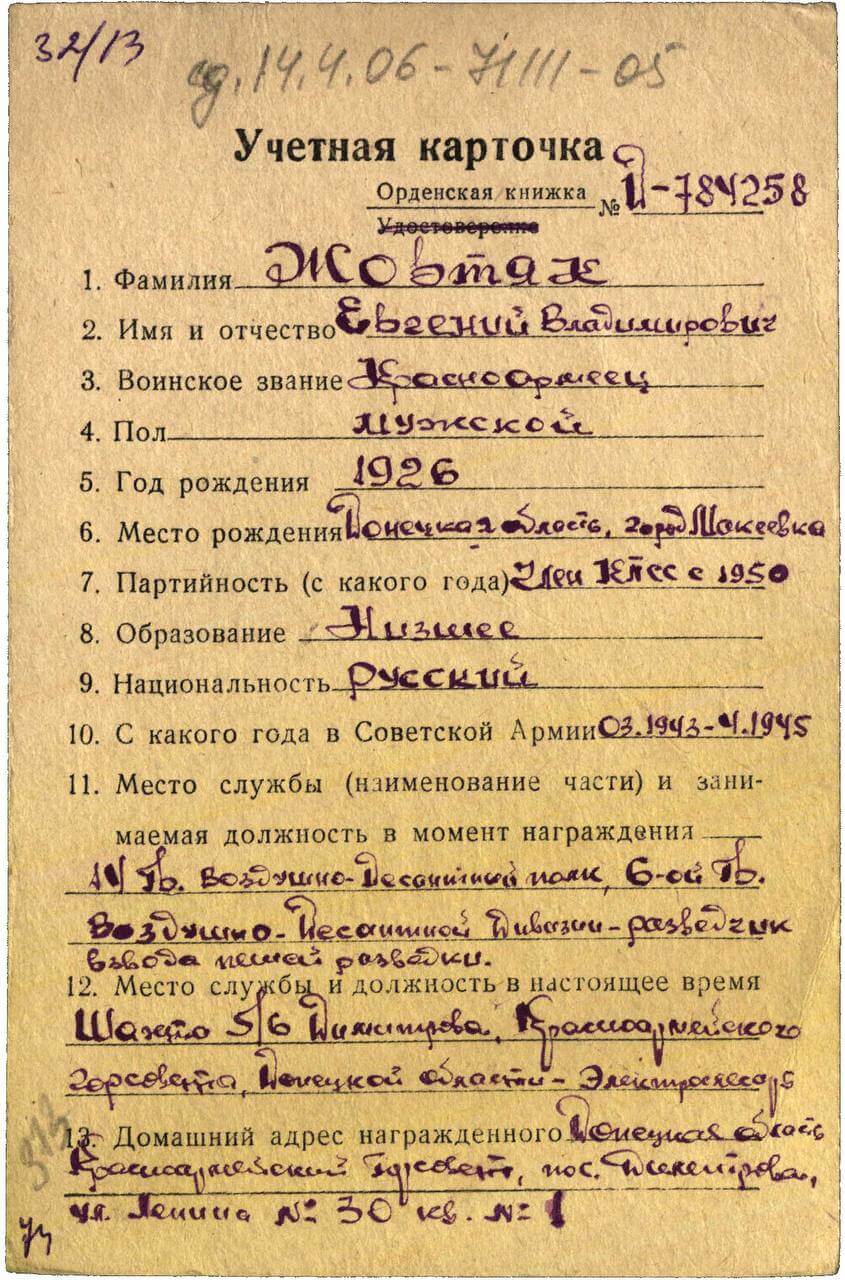 32/13
сд. 14.4.06-71111-05
Учетная карточка
Орденская книжка № И-784258
Удостоверение
1. Фамилия Жовтяк
2. Имя и отчество Евгений Владимирович
3. Воинское звание Красноармеец
4. Пол мужской
5. Год рождения 1926
6. Место рождения Донецкая область, город Макеевка
7. Партийность (с какого года) Член КПСС с 1950
8. Образование Низшее
9. Национальность русский
10. С какого года в Советской Армии 03.1943-4.1945
11. Место службы (наименование части) и зани-
маемая должность в момент награждения
14 Гв. Воздушно-Десантный полк, 6-ой Гв.
Воздушно-Десантной Дивизии-разведчик
взвода пешей разведки.
12. Место службы и должность в настоящее время
Шахта 5/6 Димитрова, Красноармейского
горсовета, Донецкой области-Электрослесарь
13. Домашний адрес награжденного Донецкая область
Красноармейский Горсовет, пос. Димитрова,
ул. Ленина № 30 кв. № 1